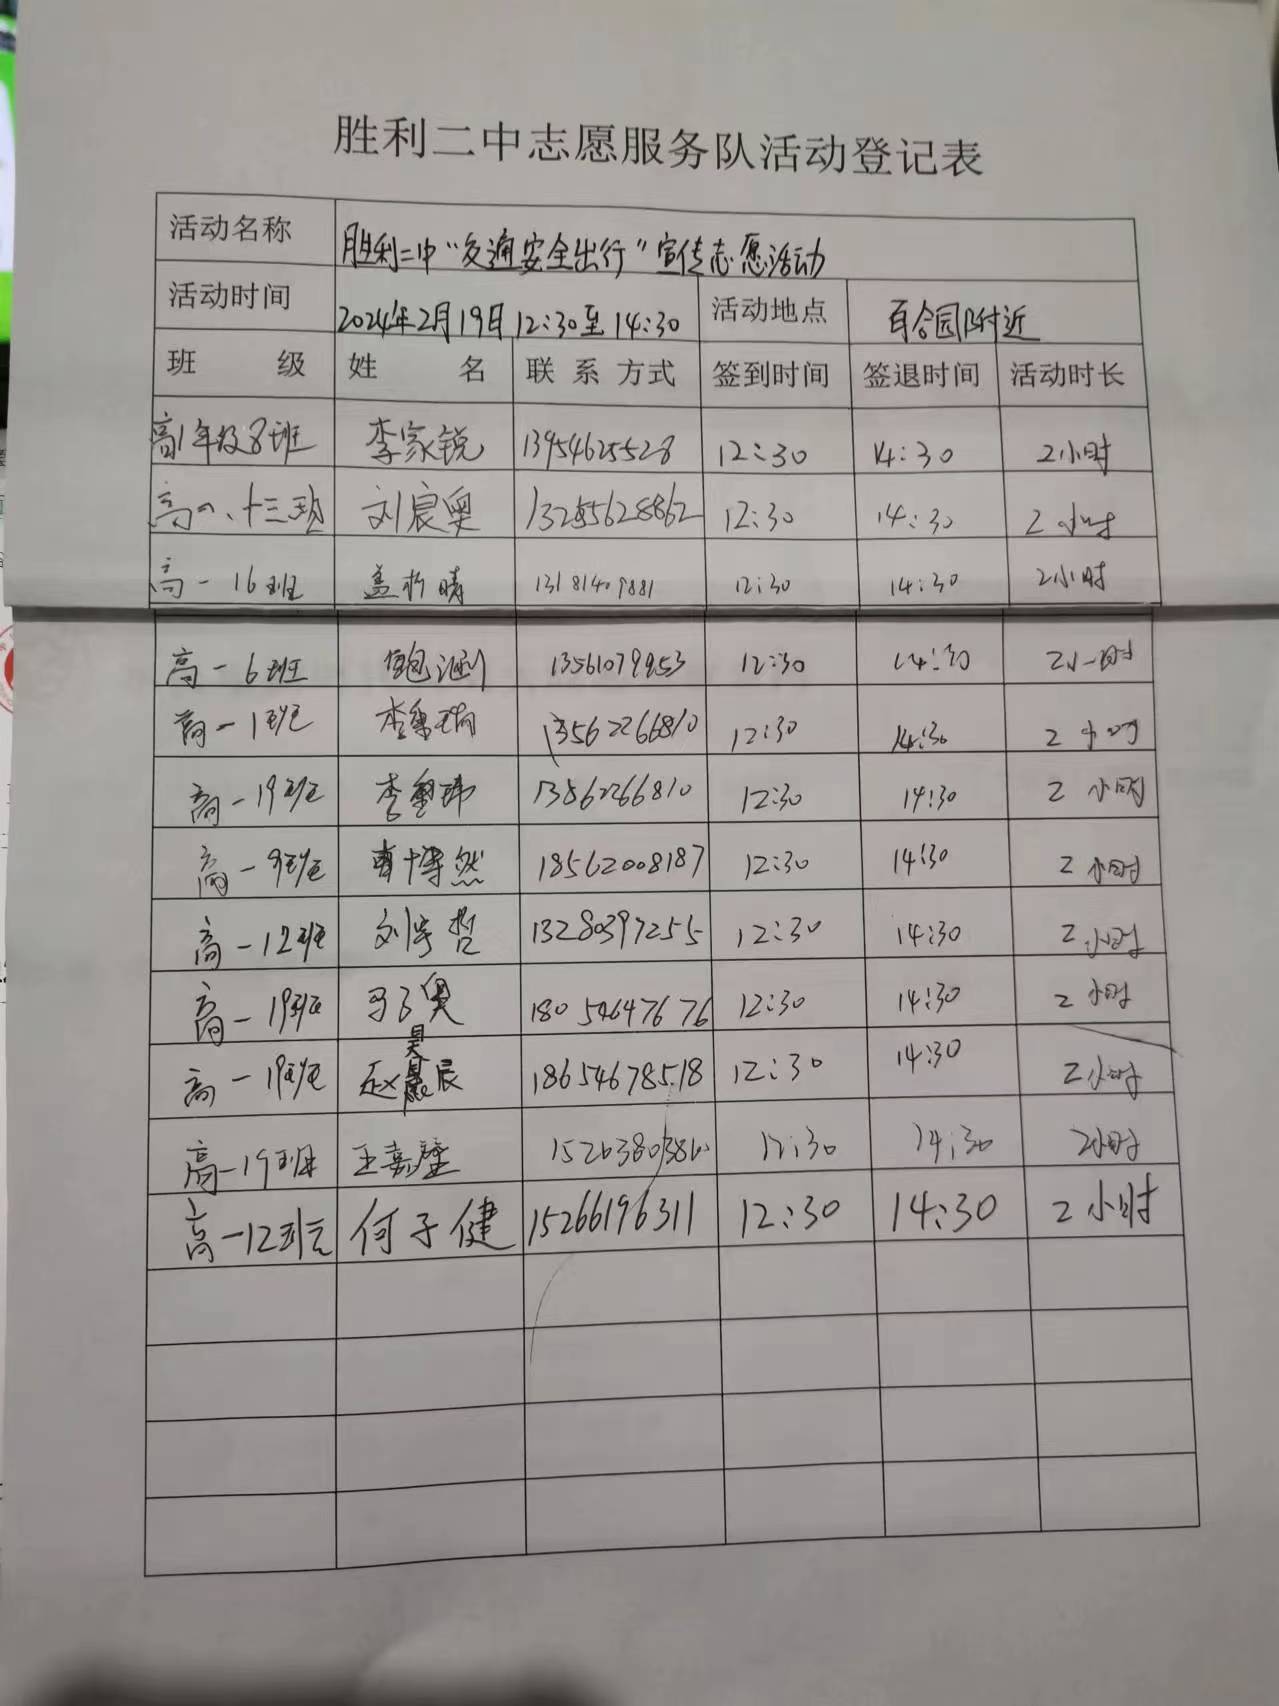 胜利二中志愿服务队活动登记表
活动名称 胜利二中“交通安全出行”宣传志愿活动
活动时间 2024年2月19日12:30至14:30 活动地点 百合园附近
班级 姓名 联系方式 签到时间 签退时间 活动时长
高1年级8班 李家锐 13954625528 12:30 14:30 2小时
高一、十三班 刘宸奥 12:30 14:30 2小时
高一16班 盖析晴 13181409881 12:30 14:30 2小时
高一6班 13561079953 12:30 14:30 2小时
高一1班 13562266810 12:30 14:30 2小时
高一19班 13562266810 12:30 14:30 2小时
高一9班 曹博然 18562008187 12:30 14:30 2小时
高一12班 刘宇哲 13280397255 12:30 14:30 2小时
高一19班 马子奥 18054647676 12:30 14:30 2小时
高一19班 赵昊辰 18654678518 12:30 14:30 2小时
高一19班 王嘉 12:30 14:30 2小时
高一12班 何子健 15266196311 12:30 14:30 2小时